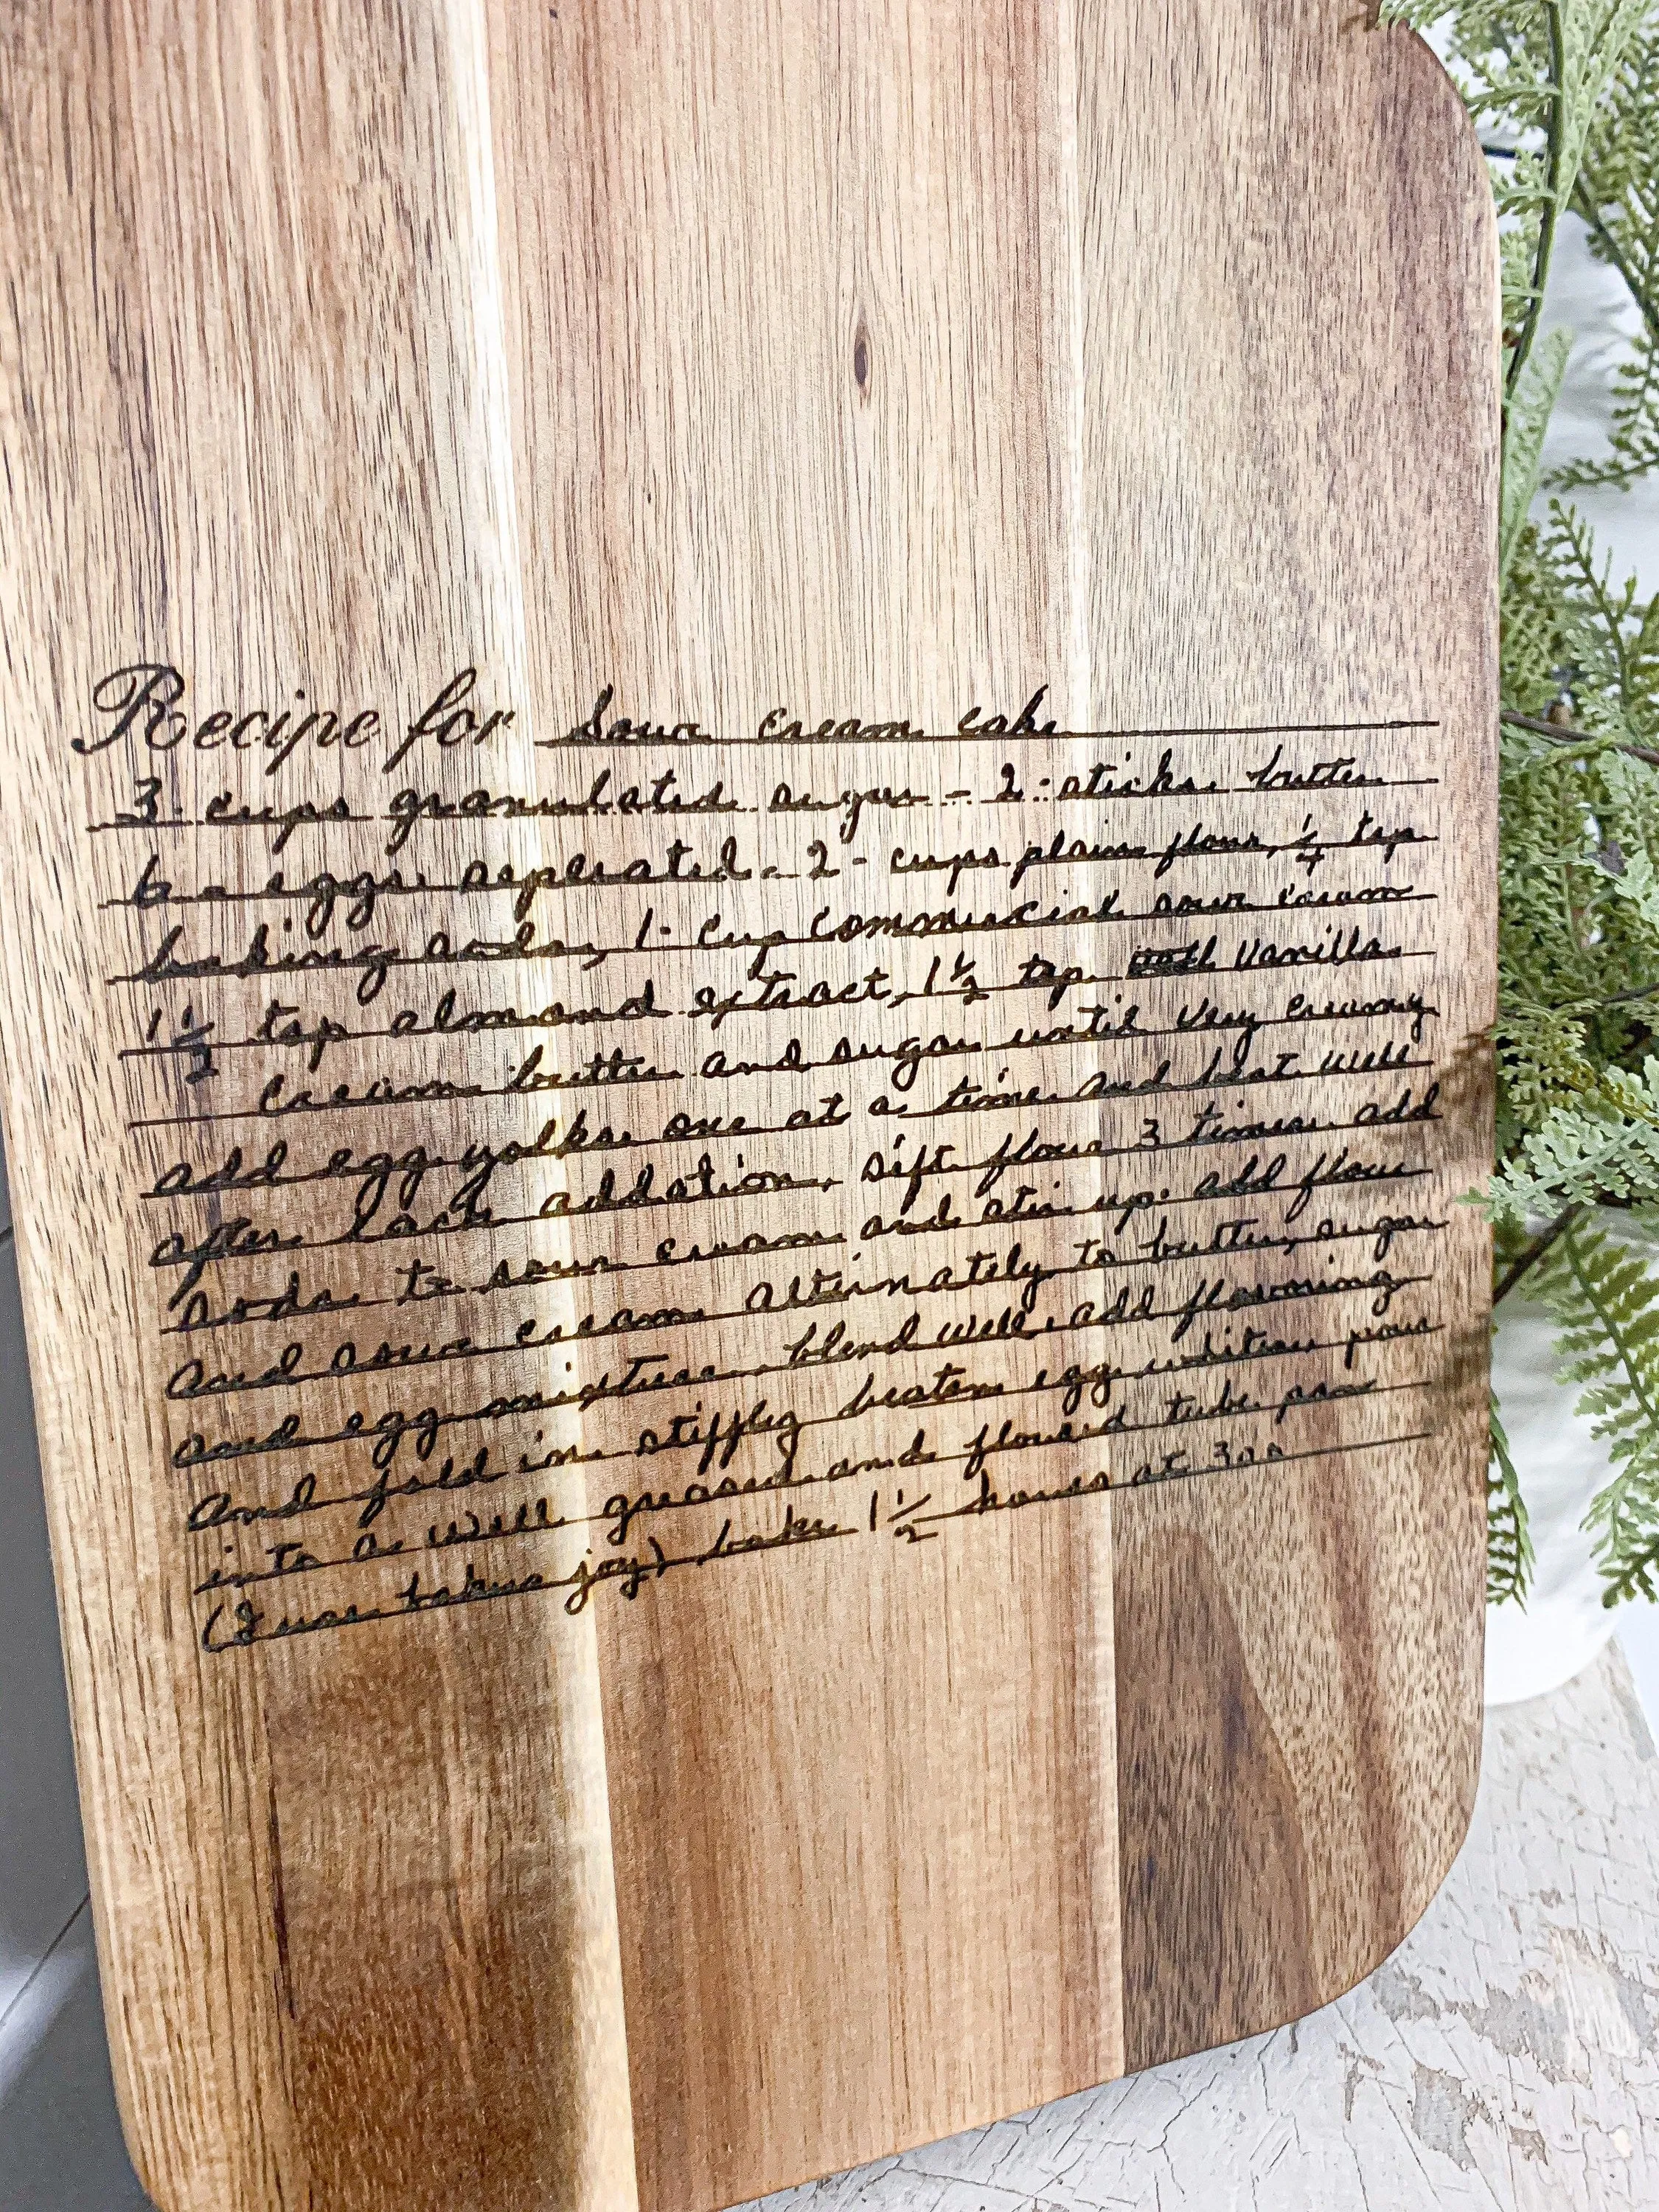 Recipe for Sour cream cake
3 cups granulated sugar - 2 sticks butter
6 - eggs seperated - 2 - cups plain flour, 1/4 tsp
baking soda, 1 cup commercial sour cream
1 1/2 tsp almond extract, 1 1/2 tsp vanilla
cream butter and sugar until very creamy
add egg yolks one at a time and beat well
after each addation, sift flour 3 times add
soda to sour cream and stir up. add flour
and sour cream alternately to butter, sugar
and egg mixture blend well, add flavoring
and fold in stiffly beaten egg whites pour
into a well greased and floured tube pan
(I use bakers joy) bake 1 1/2 hours at 300